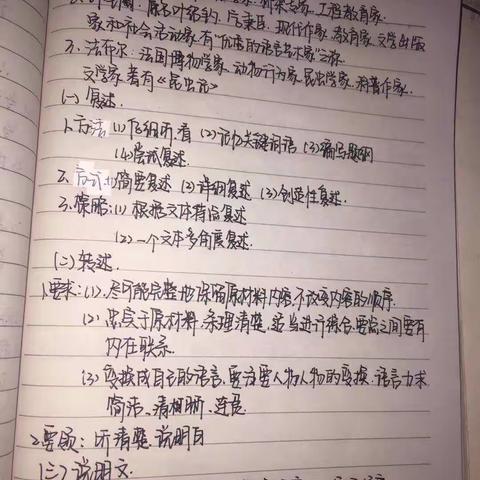 家和社会活动家,有"优秀的语言艺术家"之称.
3.法布尔:法国博物学家、动物行为家、昆虫学家、科普作家、
文学家,著有《昆虫记》
(一)复述.
1.方法:(1)仔细听、看 (2)记忆关键词语 (3)编写题纲
(4)尝试复述.
2.方式:(1)简要复述 (2)详细复述 (3)创造性复述.
3.策略:(1)根据文体特点复述
(2)一个文本多角度复述.
(二)转述.
1.要求:(1).尽可能完整地保留原材料内容,不改变内容的顺序.
(2)忠实于原材料,条理清楚,适当进行综合,要点之间要有
内在联系.
(3)变换成自己的语言,要注意人物人称的变换,语言力求
简洁、清晰、连贯.
2.要领:听清楚、说明白
(三)说明文.